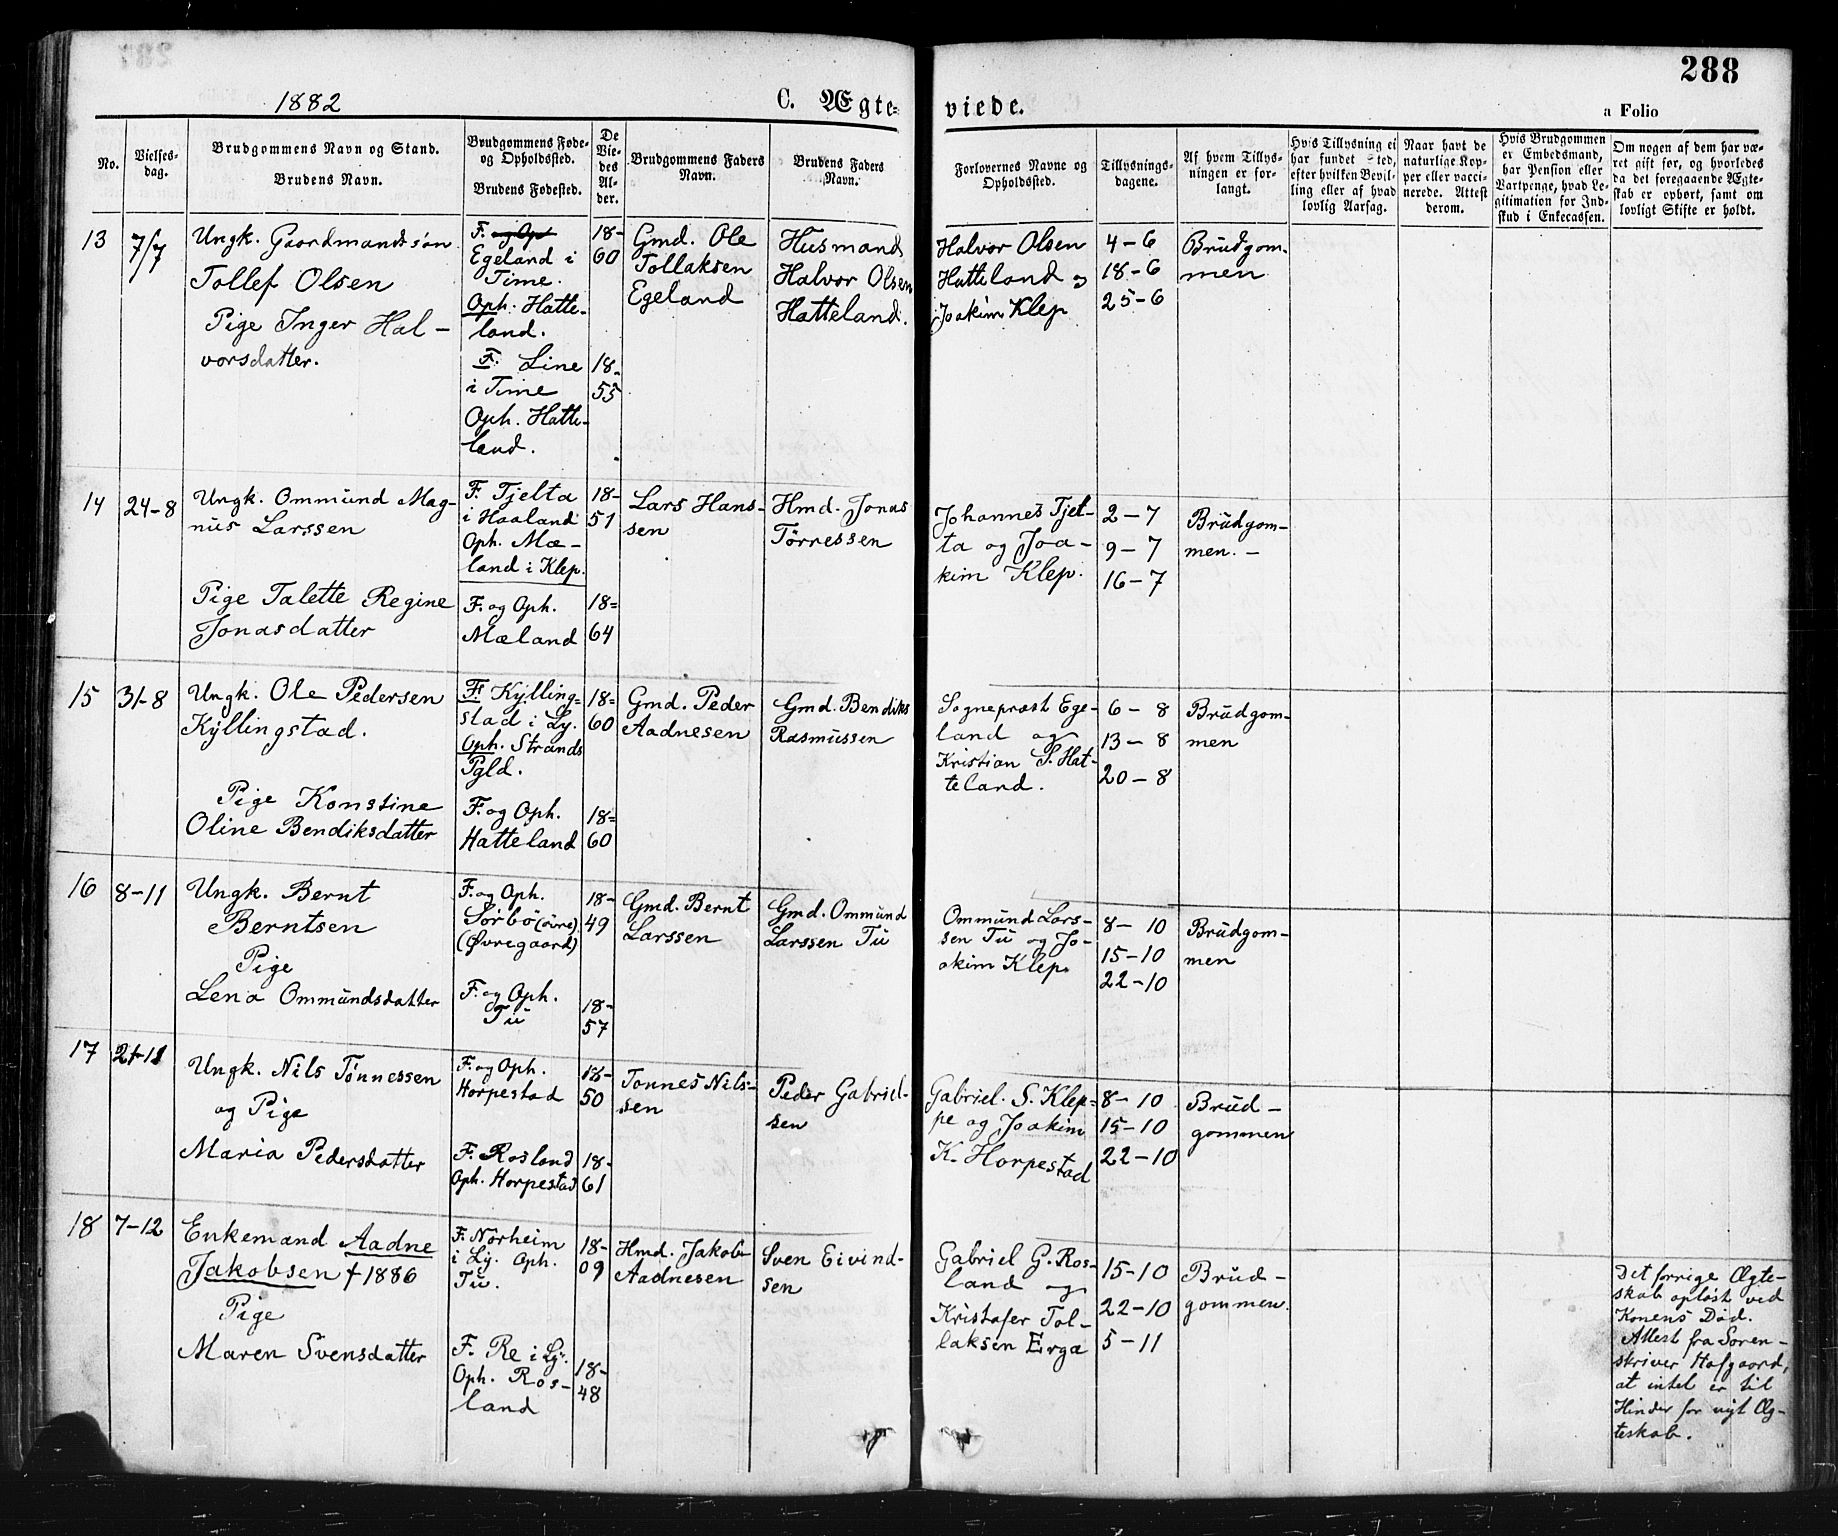 288
1882
C. Ægte-
viede.
a Folio
No.
Vielses-
dag.
Brudgommens Navn og Stand.
Brudens Navn.
Brudgommens Føde-
og Opholdssted.
Brudens Fødested.
De
Vie-
des
Al-
der.
Brudgommens Faders
Navn.
Brudens Faders
Navn.
Forlovernes Navne og
Opholdssted.
Tillysnings-
dagene.
Af hvem Tillys-
ningen er for-
langt.
Hvis Tillysning ei
har fundet Sted,
efter hvilken Bevil-
ling eller af hvad
lovlig Aarsag.
Naar havt de
naturlige Kop-
per eller vacci-
nerede. Attest
derom.
Hvis Brudgommen
er Embedsmand,
har Pension eller
Vartpenge, hvad Le-
gitimation for Ind-
skud i Enkecassen.
Om nogen af dem har væ-
ret gift før, og hvorledes
da det foregaaende Ægte-
skab er ophørt, samt om
lovligt Skifte er holdt.
13
7/7
Ungk. Gaardmandssøn
Tollef Olsen
Pige Inger Hal-
vorsdatter.
F. og Op
Egeland i
Time.
Oph. Hatte-
land.
F. Line
i Time
Oph. Hatte-
land.
18-
60
18-
55
Gmd. Ole
Tollaksen
Egeland
Husmand
Halvor Olsen
Hatteland.
Halvor Olsen
Hatteland og
Joakim Klep
4-6
18-6
25-6
Brudgom-
men
14
24-8
Ungk. Ommund Mag-
nus Larssen
Pige Talette Regine
Jonasdatter
F. Tjelta
i Haaland
Oph. Mæ-
land i Klep.
F. og Oph.
Mæland
18-
51
18-
64
Lars Hans-
sen
Hmd. Jonas
Tørressen
Johannes Tjel-
ta og Joa-
kim Klep.
2-7
9-7
16-7
Brudgom-
men. -
15
31-8
Ungk. Ole Pedersen
Kyllingstad.
Pige Konstine
Oline Bendiksdatter
F. Kylling-
stad i Ly.
Oph. Strands
Pgld.
F. og Oph.
Hatteland
18-
60
18-
60
Gmd. Peder
Aadnesen
Gmd. Bendiks
Rasmussen
Sognepræst Ege-
land og
Kristian S. Hat-
teland.
6-8
13-8
20-8
Brudgom-
men
16
8-11
Ungk. Bernt
Berntsen
Pige
Lena Ommundsdatter
F. og Oph.
Sørbø(øvre)
(Øvregaard)
F. og Oph.
Tu
18-
49
18-
57
Gmd. Bernt
Larssen
Gmd. Ommund
Larssen Tu
Ommund Lars-
sen Tu og Jo-
akim Klep.
8-10
15-10
22-10
Brudgom-
men
17
21-11
Ungk. Nils Tønnessen
og Pige
Maria Pedersdatter
F. og Oph.
Horpestad
F. Rosland
Oph. Horpestad
18-
50
18-
61
Tønnes Nils-
sen
Peder Gabriel-
sen
Gabriel. S. Klep-
pe og Joakim
K. Horpestad
8-10
15-10
22-10
Brud-
gommen
18
7-12
Enkemand Aadne
Jakobsen † 1886
Pige
Maren Svensdatter
F. Norheim
i Ly. Oph.
Tu.
F. Re i Ly.
Oph. Ros-
land
18-
09
18-
48
Hmd. Jakob
Aadnesen
Sven Eivind-
sen
Gabriel G. Ros-
land og
Kristofer Tol-
laksen Erga
15-10
22-10
5-11
Brud-
gommen.
Det forrige Ægte-
skab opløst ved
Konens Død.
Attest fra Soren-
skriver Hofgaard,
at intet er til
Hinder for nyt Æg-
teskab.